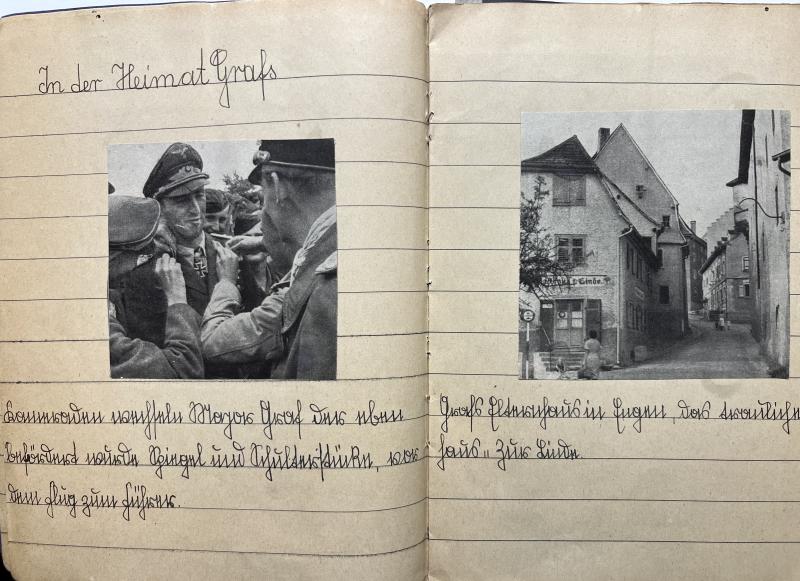 In der Heimat Grafs
Kameraden wechseln Major Graf der eben
befördert wurde Spiegel und Schulterstücke, vor
dem Flug zum Führer.
z. Linde.
Grafs Elternhaus in Engen, das trauliche
haus „ Zur Linde.